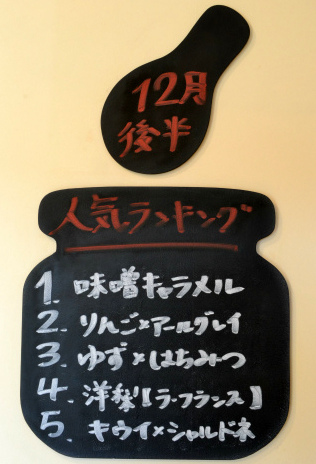 12月
後半
人気ランキング
1. 味噌キャラメル
2. りんご×アールグレイ
3. ゆず×はちみつ
4. 洋梨【ラ・フランス】
5. キウイ×シャルドネ